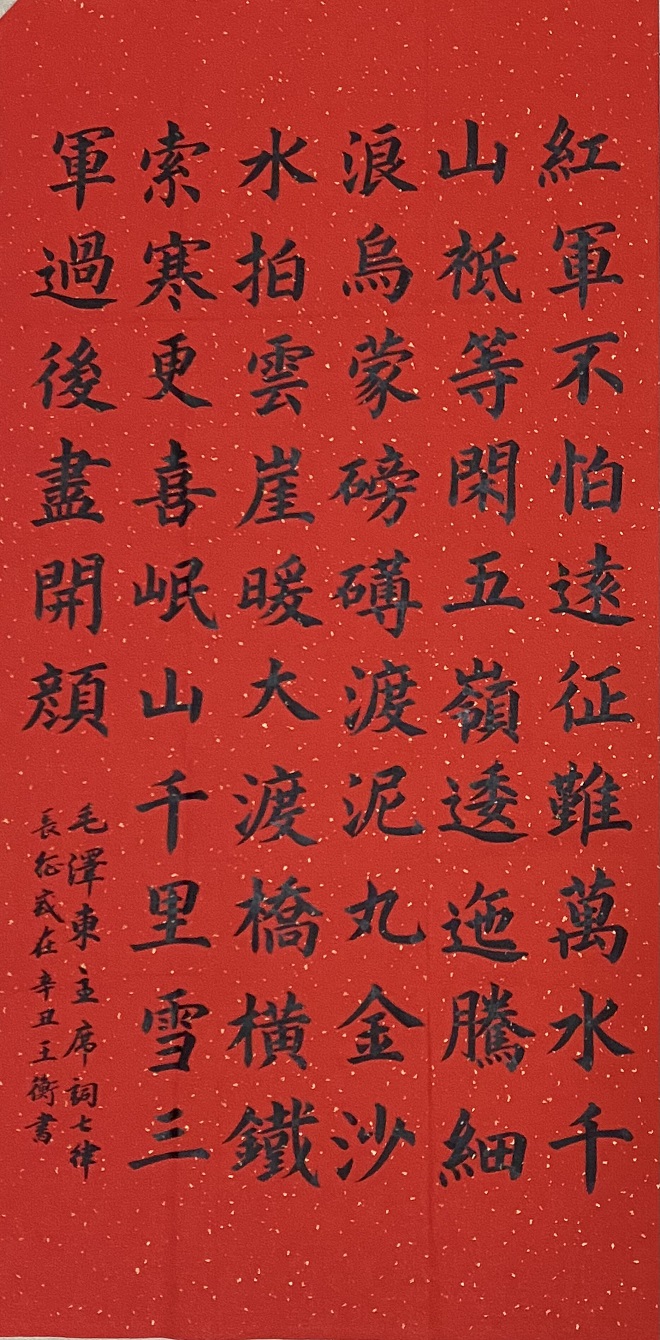 紅軍不怕遠征難萬水千
山祇等閑五嶺逶迤騰細
浪烏蒙磅礡渡泥丸金沙
水拍雲崖暖大渡橋橫鐵
索寒更喜岷山千里雪三
軍過後盡開顔
毛澤東主席詞七律
長征歲在辛丑王衡書